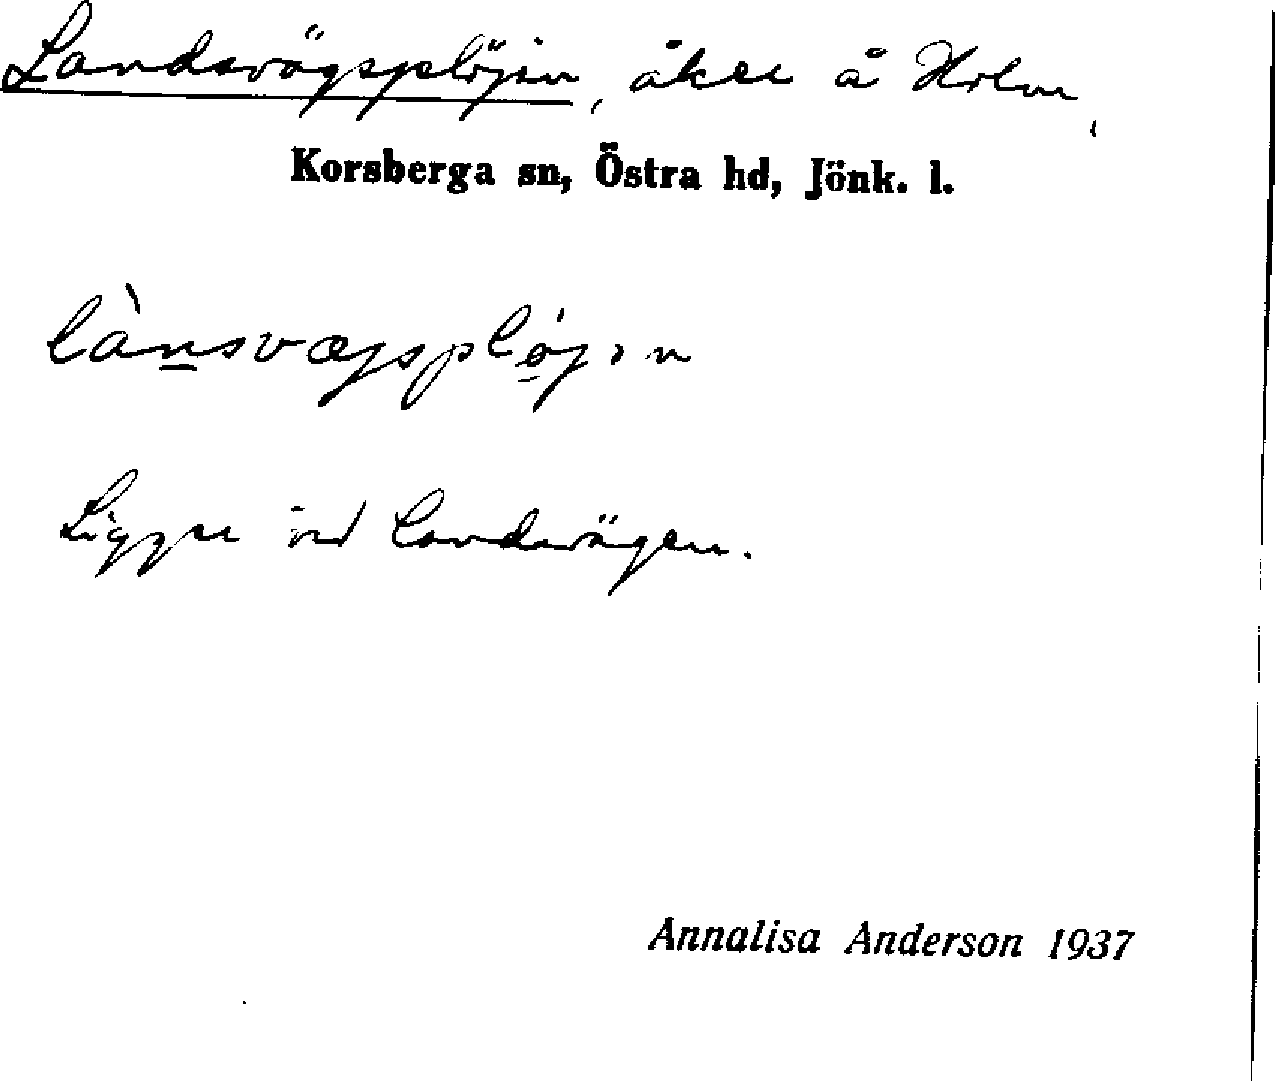 Landsvägsplöjen, åker å Holm,
Korsberga sn, Östra hd, Jönk. l.
lànsvæjsplø̠jın
Ligger vid landsvägen.
Annalisa Anderson 1937